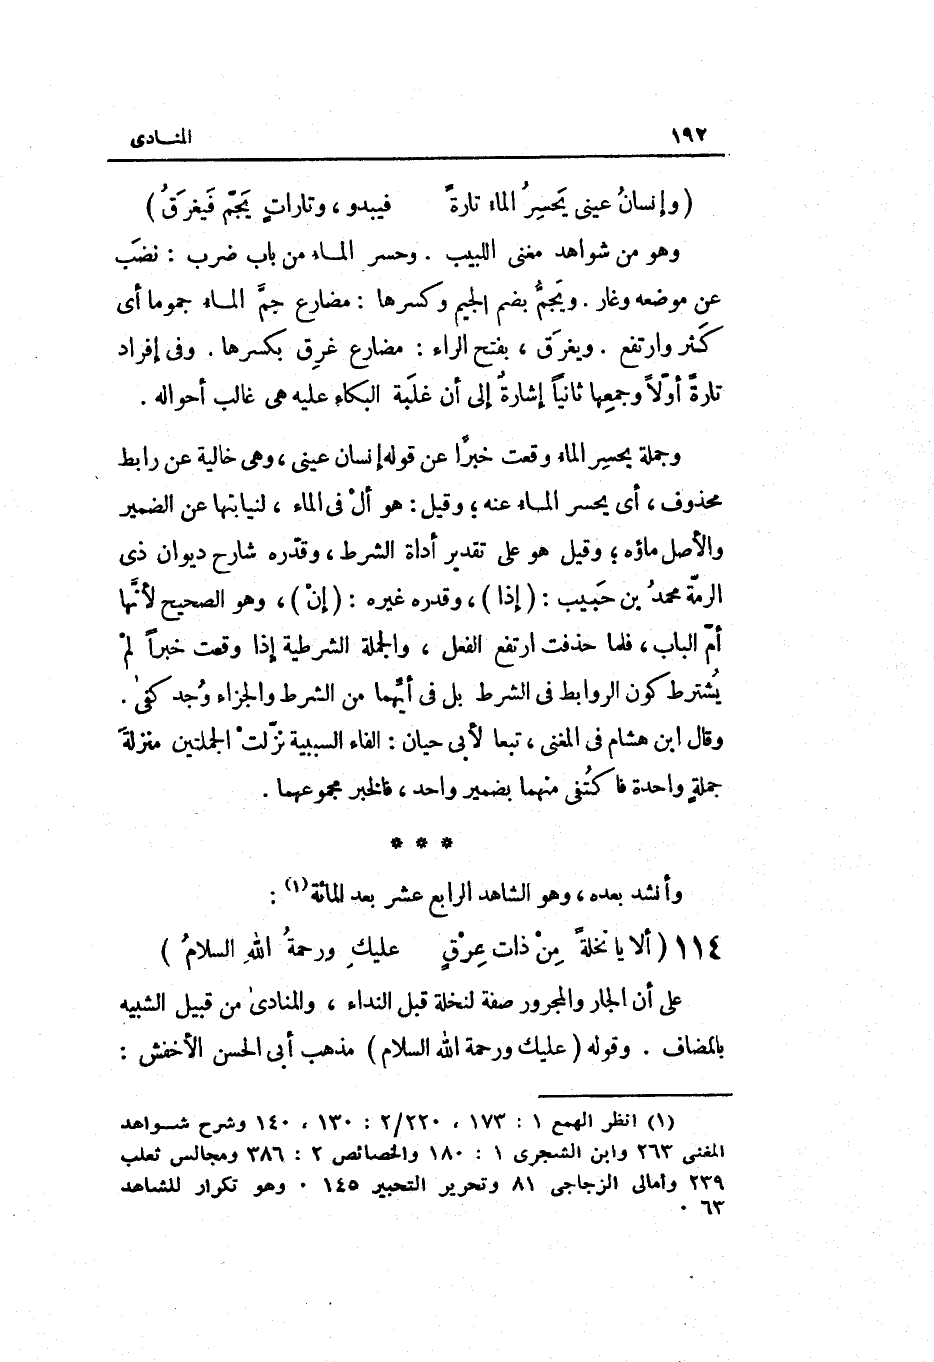 ١٩٢ المنــادى
( وإنسانُ عينى يَحسِرُ الماء تارةً فيبدو ، وتاراتٍ يَجمّ فَيغرَقُ )
وهو من شواهد مغنى اللبيب . وحسر المــاء من باب ضرب : نضَب
عن موضعه وغار . ويَجمُّ بضم الجيم وكسرها : مضارع جمَّ المــاء جموما أى
كَثر وارتفع . ويغرَق ، بفتح الراء : مضارع غرِق بكسرها . وفى إفراد
تارةً أوّلاً وجمعِها ثانيًا إشارةٌ إلى أن غلَبة البكاء عليه هى غالب أحواله .
وجملة يحسِر الماء وقعت خبرًا عن قوله إنسان عينى ، وهى خالية عن رابط
محذوف ، أى يحسر المــاء عنه ؛ وقيل : هو ألْ فى الماء ، لنيابتها عن الضمير
والأصل ماؤه ؛ وقيل هو على تقدير أداة الشرط ، وقدّره شارح ديوان ذى
الرمّة محمدُ بن حَبيب : ( إذا ) ، وقدره غيره : ( إنْ ) ، وهو الصحيح لأنَّها
أمّ الباب ، فلما حذفت ارتفع الفعل ، والجملة الشرطية إذا وقعت خبراً لمْ
يُشترط كون الروابط فى الشرط بل فى أيِّهما من الشرط والجزاء وُجد كفى .
وقال ابن هشام فى المغنى ، تبعا لأبى حيان : الفاء السببية نزّلتْ الجملتين منزلةَ
جملةٍ واحدة فاكتُفى منهما بضمير واحد ، فالخبر مجموعهما .
* * *
وأنشد بعده ، وهو الشاهد الرابع عشر بعد المائة (١) :
١١٤ ( ألا يا نخلةً مِنْ ذات عِرْقٍ عليكِ ورحمةُ اللهِ السلامُ )
على أن الجار والمجرور صفة لنخلة قبل النداء ، والمنادى من قبيل الشبيه
بالمضاف . وقوله ( عليك ورحمة الله السلام ) مذهب أبى الحسن الأخفش :
(١) انظر الهمع ١ : ١٧٣ ، ٢/٢٢٠ : ١٣٠ ، ١٤٠ وشرح شــواهد
المغنى ٢٦٣ وابن الشجرى ١ : ١٨٠ والخصائص ٢ : ٣٨٦ ومجالس ثعلب
٢٣٩ وأمالى الزجاجى ٨١ وتحرير التحبير ١٤٥ . وهو تكرار للشاهد
٦٣ .